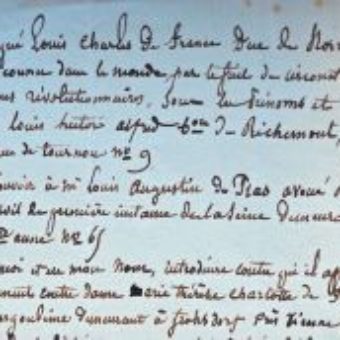 Louis Charles de France Duc de Nor
connu dans le monde, par le fait de
révolutionnaires, sous les Prénoms et
louis hector alfred Bon de Richemont,
de tournon no 9
à Mr Louis Augustin de Pras avoué
de première instance de la Seine demeura
anne No 65
moi et en mon Nom, introduire contre qui il
contre dame Marie thérèse charlotte de
demeurant à frohsdorf près vienne